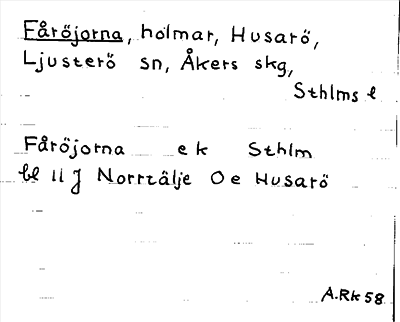 Fåröjorna, holmar, Husarö,
Ljusterö sn, Åkers skg,
Sthlms l
Fåröjorna ek Sthlm
bl 11 J Norrtälje O e Husarö
A.Rk 58